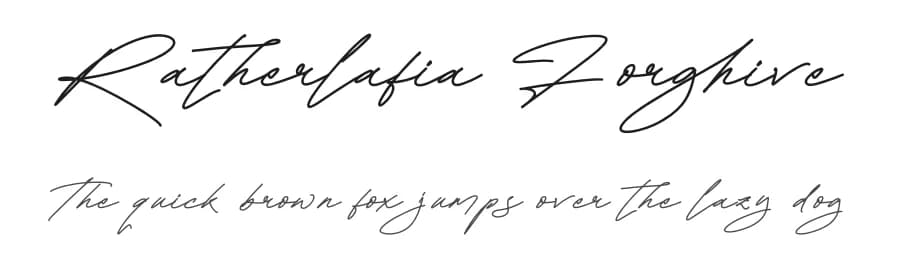 Ratherlafia Forghive
The quick brown fox jumps over the lazy dog